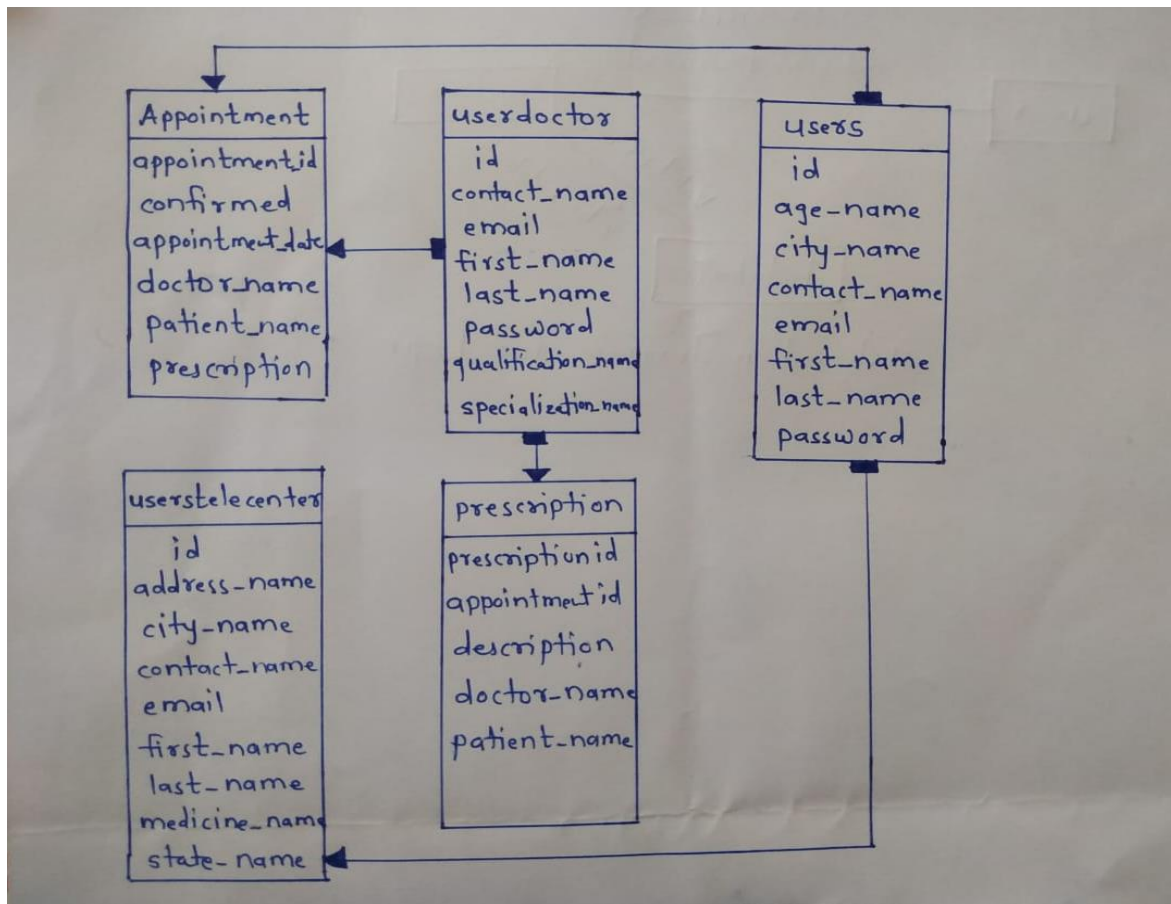 Appointment
appointment_id
confirmed
appointment_date
doctor_name
patient_name
prescription
userdoctor
id
contact_name
email
first_name
last_name
password
qualification_name
specialization_name
users
id
age-name
city-name
contact_name
email
first_name
last_name
password
userstelecenter
id
address-name
city-name
contact_name
email
first_name
last_name
medicine_name
state-name
prescription
prescriptionid
appointmentid
description
doctor-name
patient_name